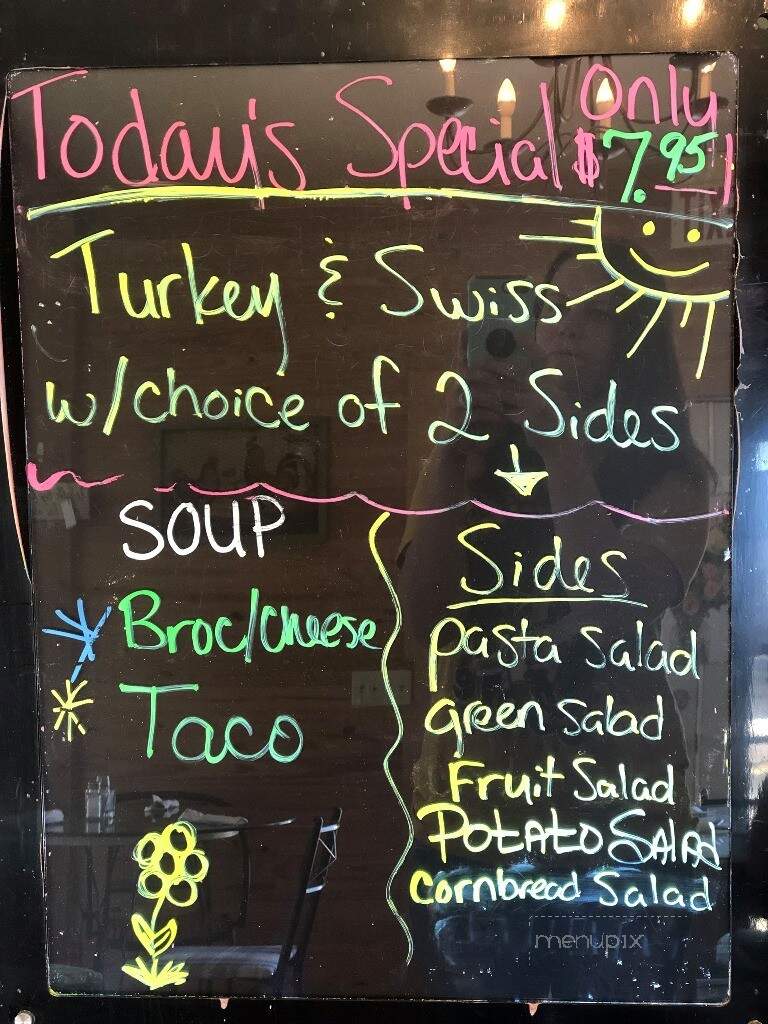 Today's Special Only
$7.95
Turkey & Swiss
w/choice of 2 Sides
SOUP
Broc/cheese
Taco
Sides
pasta salad
green salad
Fruit Salad
Potato Salad
cornbread Salad
menupix